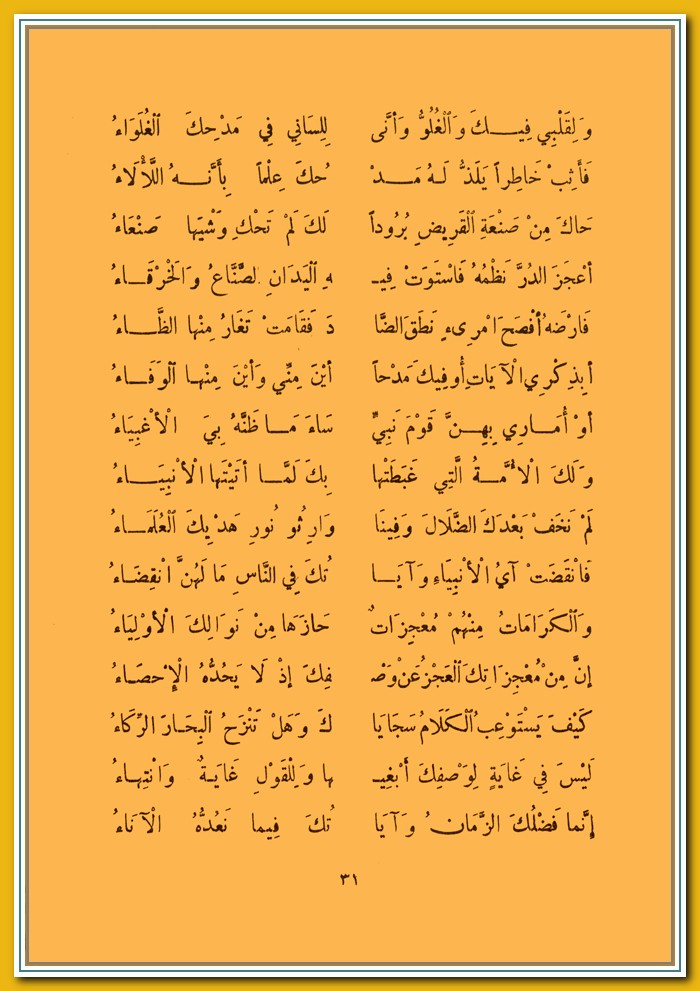 وَلِقَلْبِي فِيـــكَ وَٱلْغُلُوُّ وَأَنَّى لِلِسَانِي فِي مَدْحِكَ ٱلْغُلَوَاءُ
فَأَثِبْ خَاطِراً يَلَذُّ لَـهُ مَـــدْ حُكَ عِلْماً بِأَنَّـــهُ اللَّأْلَاءُ
حَاكَ مِنْ صَنْعَةِ ٱلْقَرِيضِ بُرُوداً لَكَ لَمْ تَحْكِ وَشْيَهَا صَنْعَاءُ
أَعْجَزَ الدُرَّ نَظْمُهُ فَاسْتَوَتْ فِيـ ـهِ ٱلْيَدَانِ الصُّنَّاعُ وَالْخَرْقَـــاءُ
فَارْضَهُ أَفْصَحَ امْرِىءٍ نَطَقَ الضَّا دَ فَقَامَتْ تَغَارُ مِنْها الظَّـــاءُ
أَبِذِكْرِي الْآيَاتِ أُوفِيكَ مَدْحاً أَيْنَ مِنِّي وَأَيْنَ مِنْهـا ٱلْوَفَـــاءُ
أَوْ أُمَـــارِي بِهِـــنَّ قَوْمَ نَبِيٍّ سَاءَ مَـــا ظَنَّهُ بِيَ الْأَغْبِيَاءُ
وَلَكَ الْأُمَّـــةُ الَّتِي غَبَطَتْها بِكَ لَمَّـــا أَتَيْتَها الْأَنْبِيَـــاءُ
لَمْ نَخَفْ بَعْدَكَ الضَّلَالَ وَفِينَا وَارِثُو نُورِ هَدْيِكَ ٱلْعُلَمَـــاءُ
فَانْقَضَتْ آيُ الْأَنْبِيَاءِ وَآيَـــا تُكَ فِي النَّاسِ مَا لَهُنَّ انْقِضَـاءُ
وَٱلْكَرَامَاتُ مِنْهُمْ مُعْجِزَاتٌ حَازَهَا مِنْ نَوَالِكَ الْأَوْلِيَاءُ
إِنَّ مِنْ مُعْجِزَاتِكَ ٱلْعَجْزُ عَنْ وَصْـ ـفِكَ إِذْ لَا يَحُدُّهُ الْإِحْصَـاءُ
كَيْفَ يَسْتَوْعِبُ ٱلْكَلَامُ سَجَايَا كَ وَهَلْ تَنْزَحُ ٱلْبِحَـارَ الرِّكَاءُ
لَيْسَ فِي غَايَةٍ لِوَصْفِكَ أَبْغِيـ ـها وَلِلْقَوْلِ غَايَـةٌ وَانْتِهـاءُ
إِنَّما فَضْلُكَ الزَّمَانُ وَآيَا تُكَ فِيما نَعُدُّهُ الْآنَاءُ
٣١